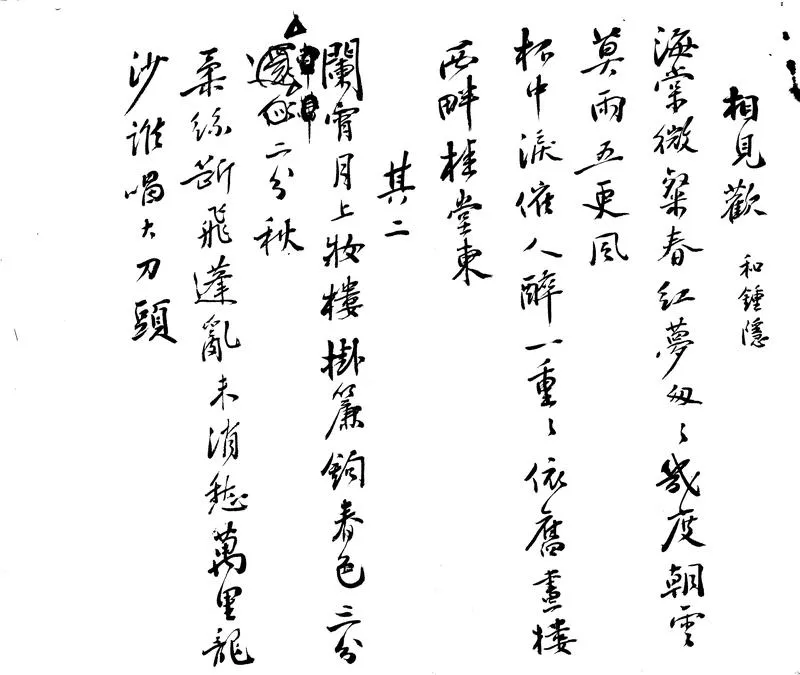 相見歡 和鍾隱
海棠微粲春紅夢匆〻幾度朝雲
莫雨五更風
杯中淚催人醉一重〻依舊畫樓
西畔桂堂東
其二
闌宵月上妝樓掛簾鉤春色三分
還二分秋
柔絲斷飛蓬亂未消愁萬里龍
沙誰唱大刀頭